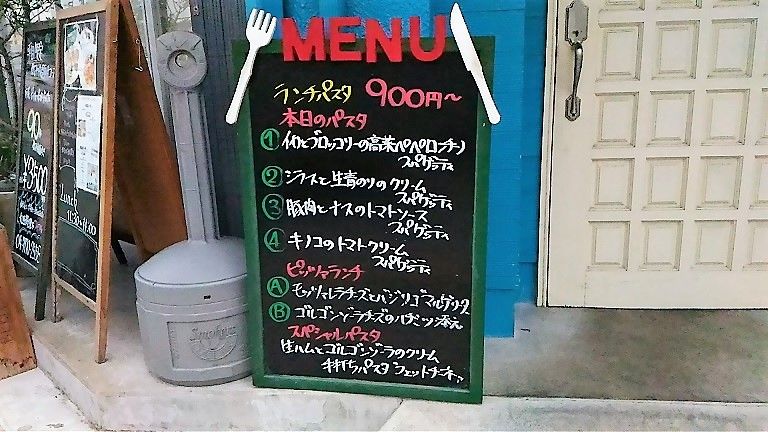 MENU
ランチパスタ 900円〜
本日のパスタ
① イカとブロッコリーの高菜ペペロンチーノ
スパゲッティ
② シラスと生青のりのクリーム
スパゲッティ
③ 豚肉とナスのトマトソース
スパゲッティ
④ キノコのトマトクリーム
スパゲッティ
ピッツァランチ
Ⓐ モッツァレラチーズとバジリコ マルゲリータ
Ⓑ ゴルゴンゾーラチーズのハチミツ添え
スペシャルパスタ
生ハムとゴルゴンゾーラのクリーム
手打ちパスタ フェットチーネ
¥3500
Lunch